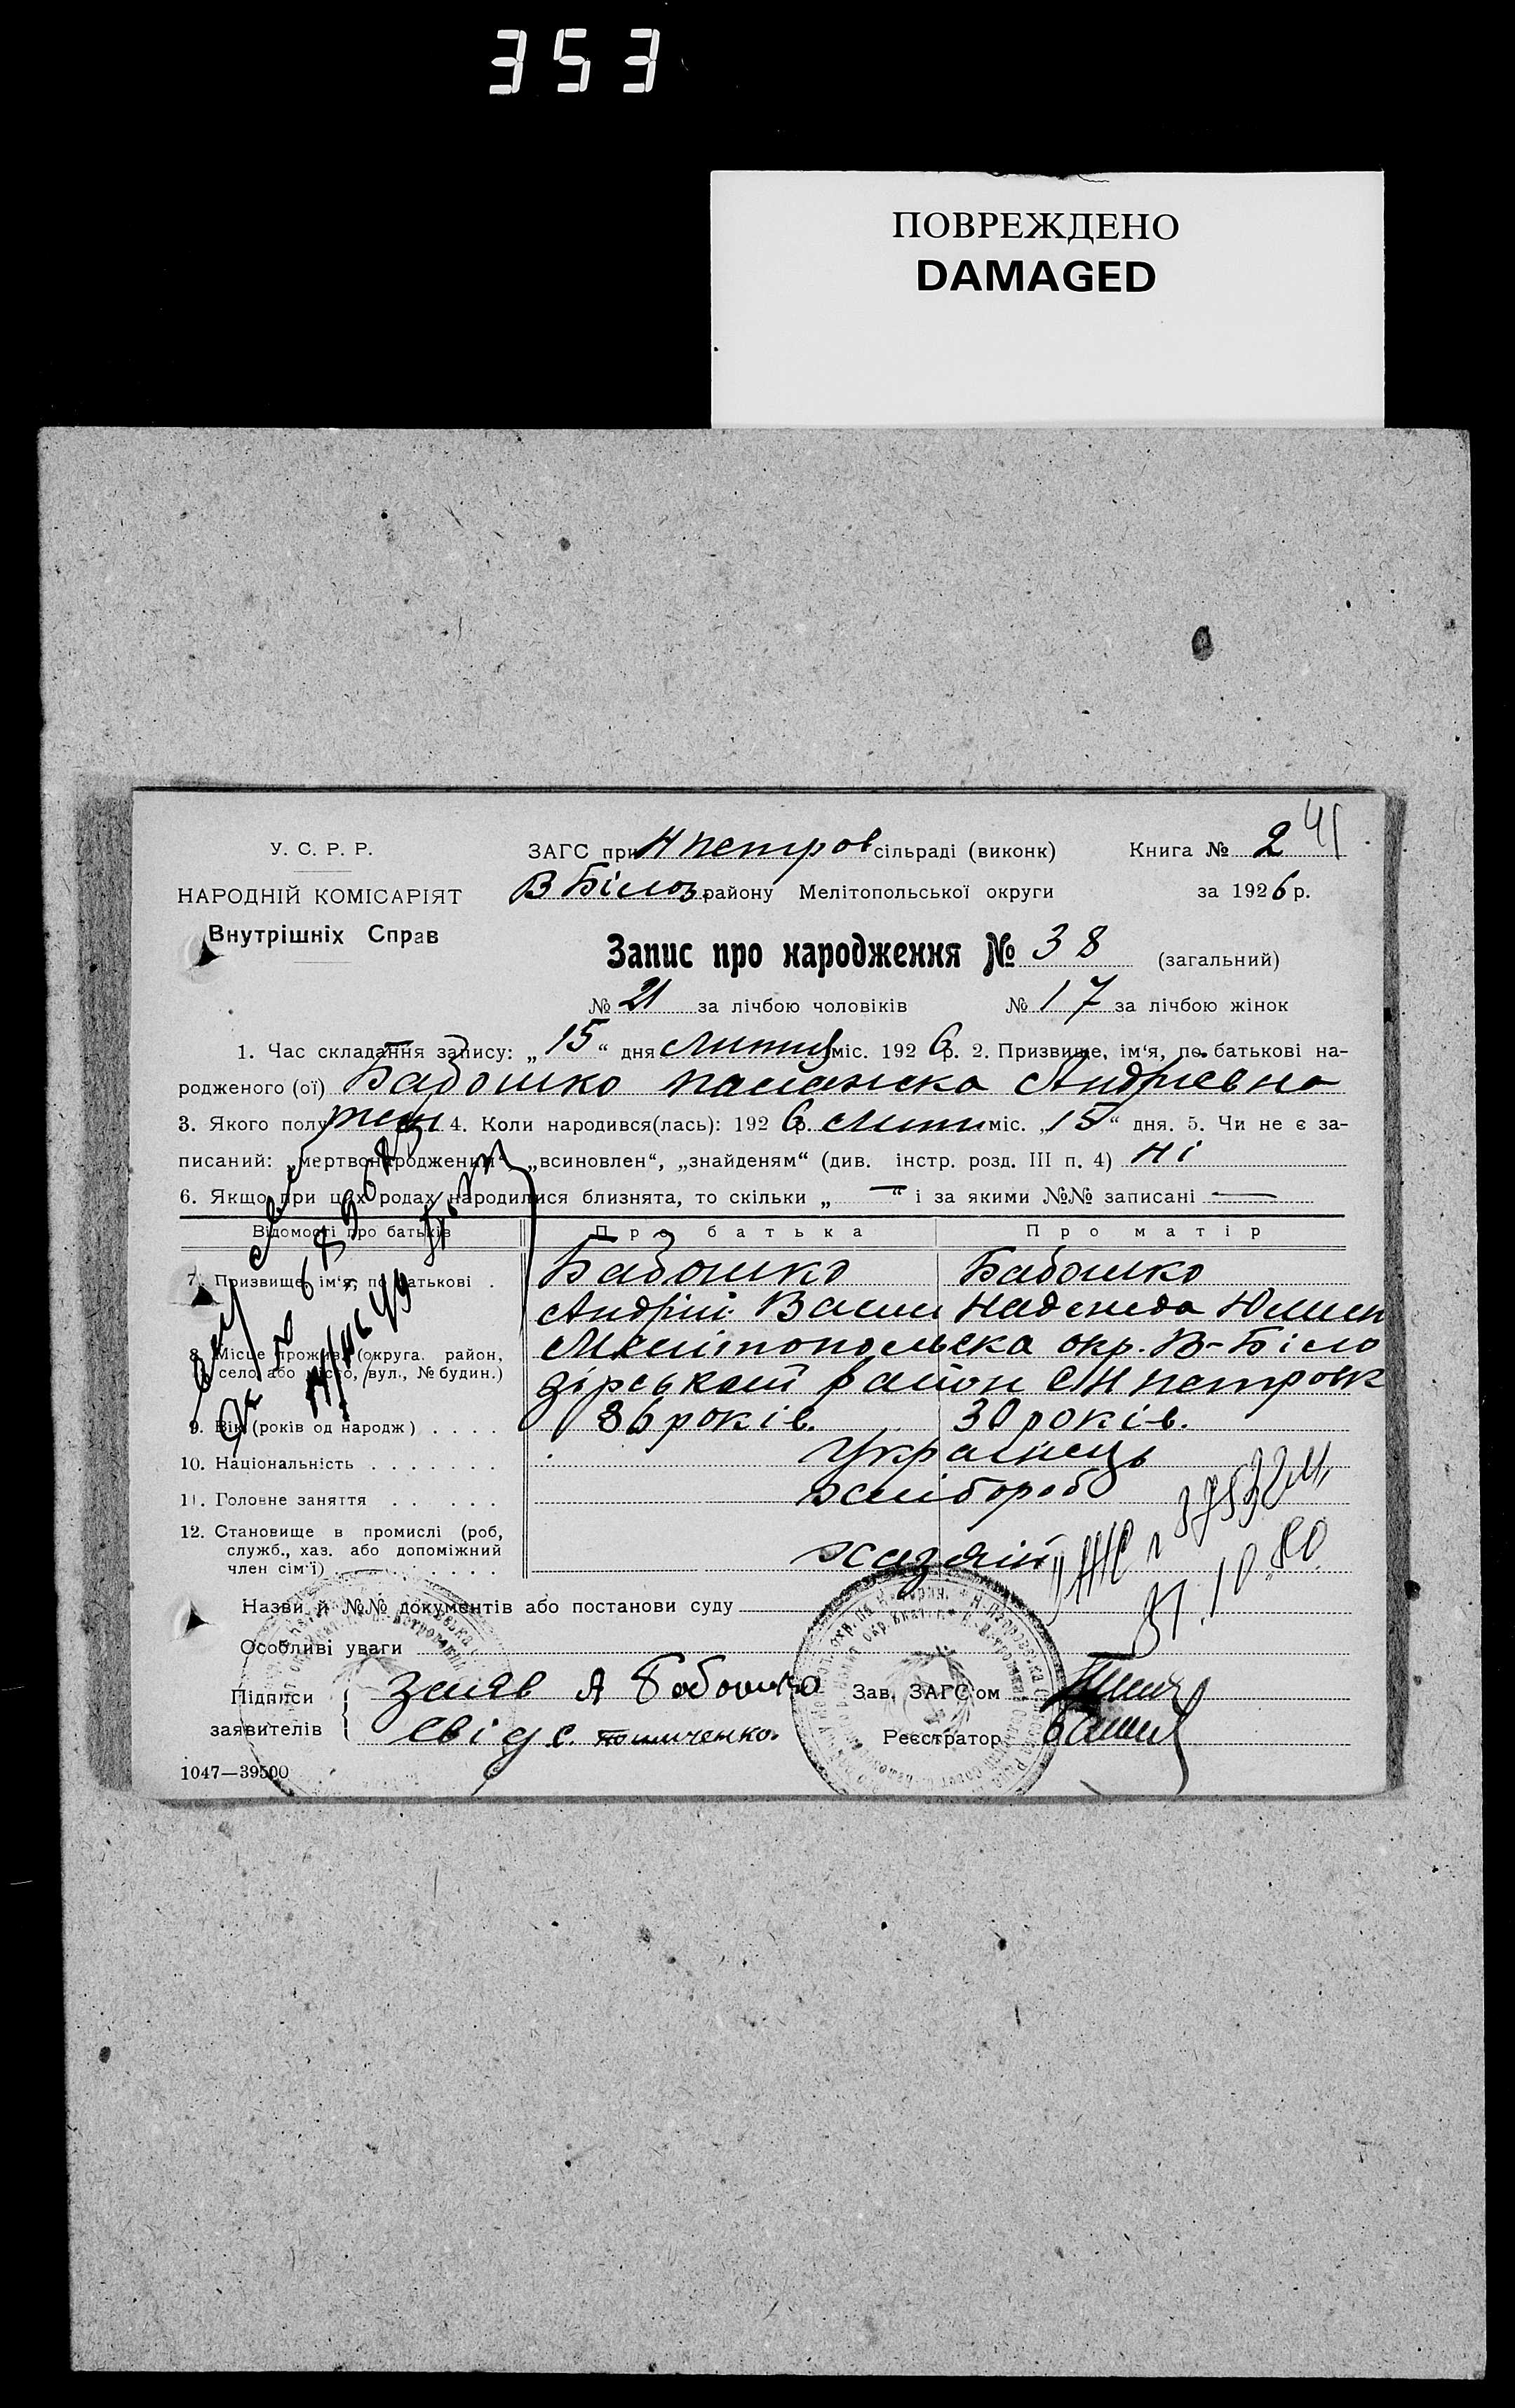 353
ПОВРЕЖДЕНО
DAMAGED
У. С. Р. Р.
НАРОДНІЙ КОМІСАРІЯТ
Внутрішніх Справ
ЗАГС при Н петров сільраді (виконк)
Книга № 2 41
В Білоз району Мелітопольської округи
за 1926 р.
Запис про народження № 38 (загальний)
№ 21 за лічбою чоловіків № 17 за лічбою жінок
1. Час складання запису: „15“ дня Лютня міс. 1926 р. 2. Призвище, ім‘я, по батькові на-
родженого (ої) Бабошко Андріевна
3. Якого полу жен 4. Коли народився(лась): 1926 р. міс. „15“ дня. 5. Чи не є за-
писаний: „мертвонародженим“ „всиновлен“, „знайденям“ (див. інстр. розд. III п. 4) Ні
6. Якщо при цих родах народилися близнята, то скільки „—“ і за якими №№ записані —
Відомості про батьків Про батька Про матір
7. Призвище, ім‘я, по батькові . Бабошко Бабошко
Андрій Васил Надежда
8. Місце прожив. (округа. район, село або місто, вул., № будин.) Мелітопольска окр. В-Біло
зірський район Н петровк
9. Вік (років од народж) . . . . 36 років. 30 років.
10. Національність . . . . . . . Украінець
11. Головне заняття . . . . . . хлібороб
12. Становище в промислі (роб,
служб., хаз. або допоміжний
член сім‘ї) . . . . . . . . . хазяін
31.10.80
Назви й №№ документів або постанови суду
Особливі уваги
Підписи заявителів { Заяв А Бабошко
Свід с.
Зав. ЗАГС‘ом
Реєстратор
1047—39500